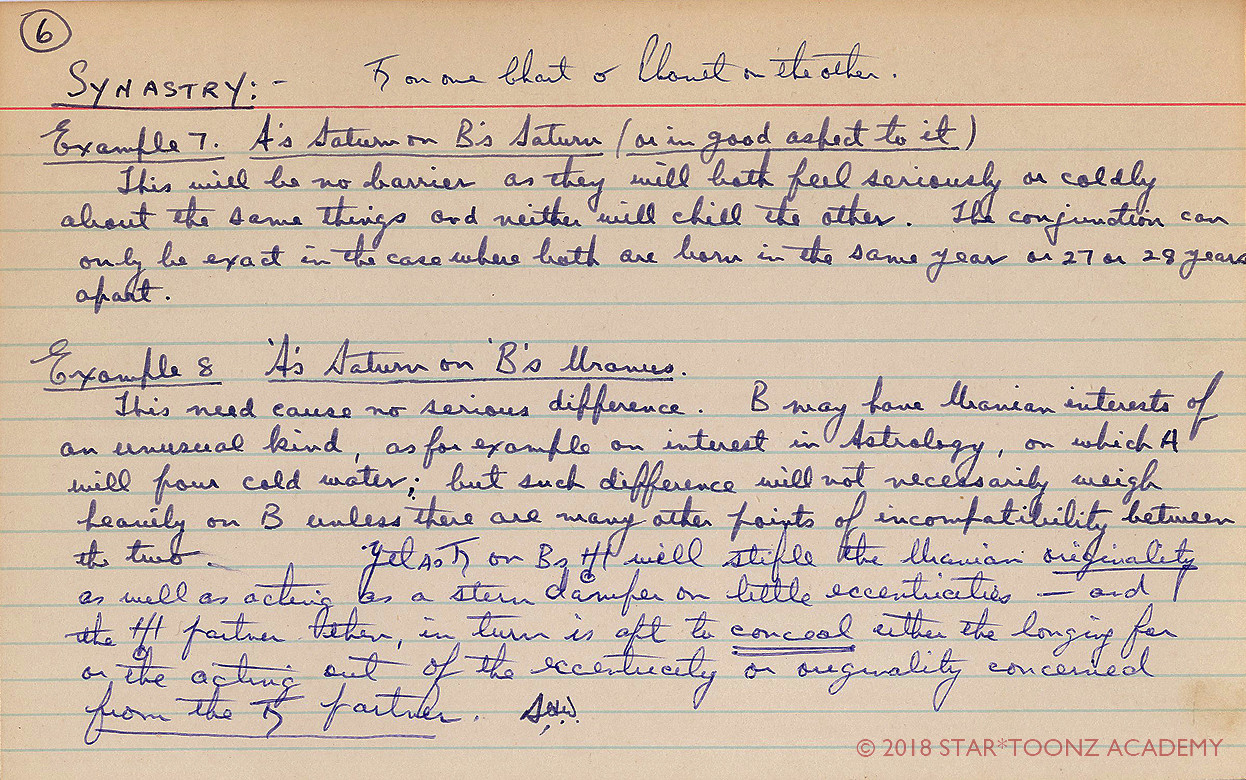 6
SYNASTRY:- ♄ on one Chart & Planet on the other.
Example 7. A's Saturn on B's Saturn (or in good aspect to it)
This will be no barrier as they will both feel seriously or coldly
about the same things and neither will chill the other. The conjunction can
only be exact in the case where both are born in the same year or 27 or 28 years
apart.
Example 8 'A's Saturn on 'B's Uranus.
This need cause no serious difference. B may have Uranian interests of
an unusual kind, as for example an interest in Astrology, on which A
will pour cold water; but such difference will not necessarily weigh
heavily on B unless there are many other points of incompatibility between
the two. Yet As ♄ on Bs ♅ will stifle the Uranian originality
as well as acting as a stern damper on little eccentricities — and
the ♅ partner then, in turn is apt to conceal either the longing for
or the acting out of the eccentricity or originality concerned
from the ♄ partner.
© 2018 STAR*TOONZ ACADEMY